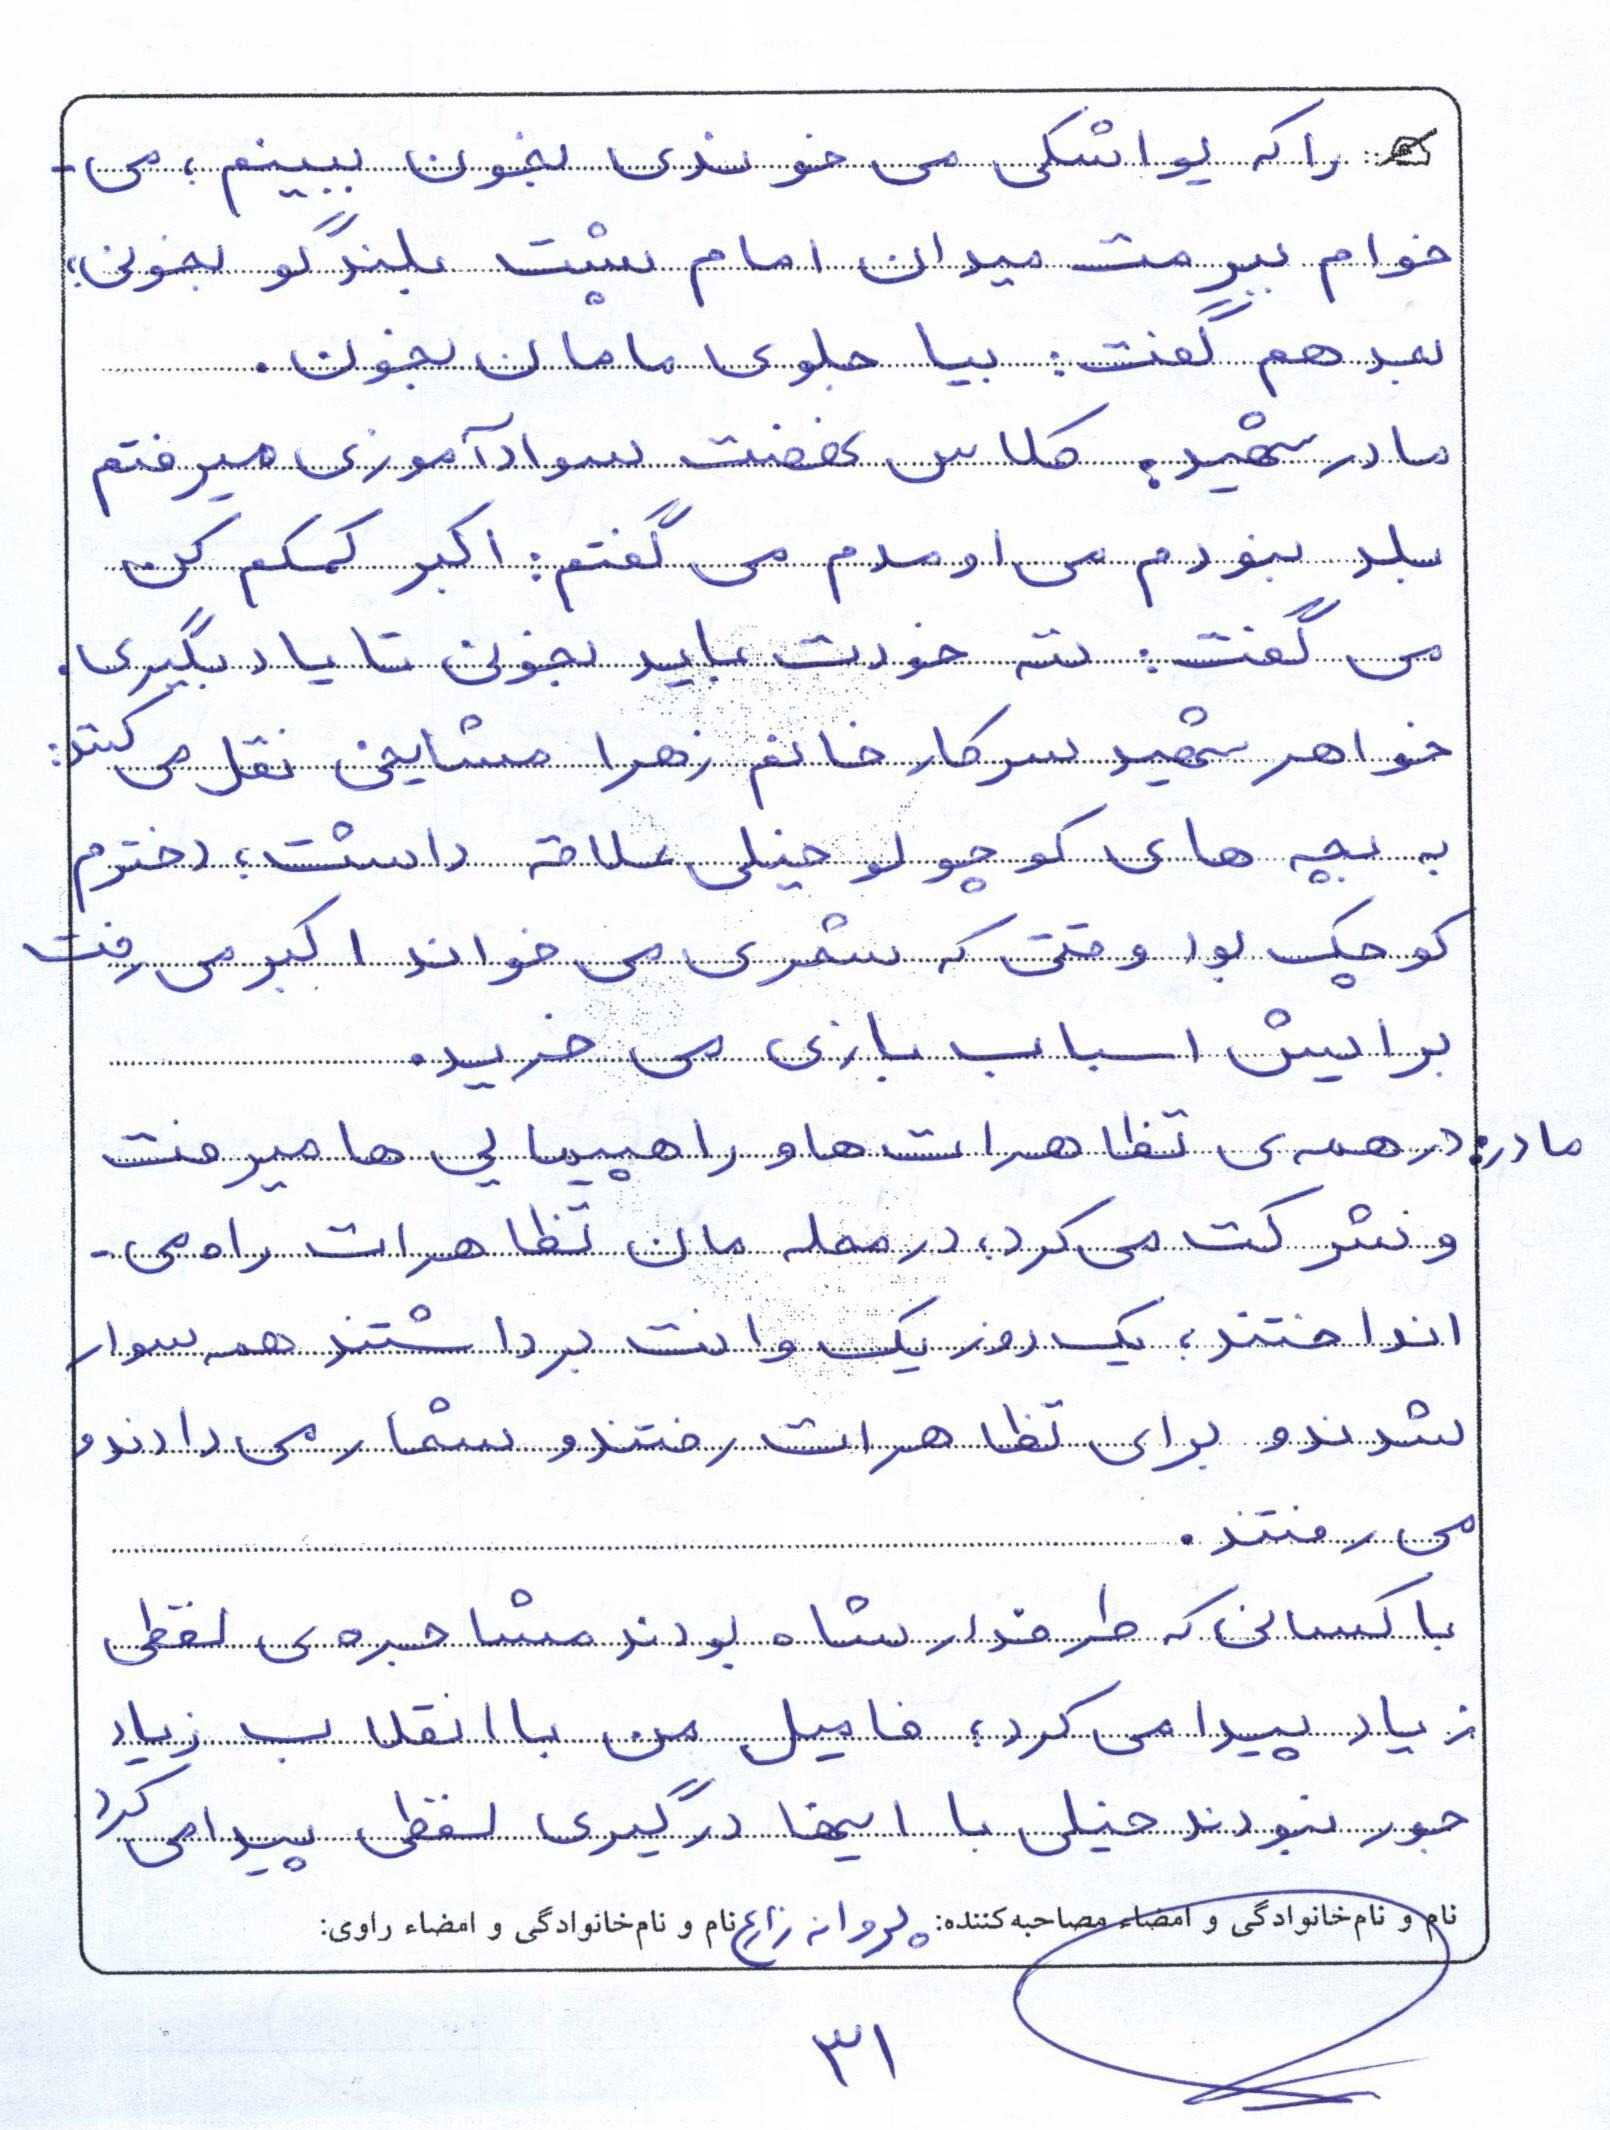 را که یواشکی می خوندی بخون ببینم، می-
خوام ببرمت میدان امام پشت بلندگو بخونی،
بعد هم گفت: بیا جلوی مامان بخون.
مادر شهید: کلاس نهضت سوادآموزی میرفتم
بلد نبودم می اومدم می گفتم: اکبر کمکم کن
می گفت: ننه خودت باید بخونی تا یاد بگیری.
خواهر شهید سرکار خانم زهرا مشایخی نقل می کنند:
به بچه های کوچولو خیلی علاقه داشت، دخترم
کوچک بود وقتی که شعری می خواند اکبر می رفت
برایش اسباب بازی می خرید.
مادر: در همه ی تظاهرات ها و راهپیمایی ها میرفت
و شرکت می کرد، در محله مان تظاهرات راه می-
انداختند، یک روز یک وانت برداشتند همه سوار
شدند و برای تظاهرات رفتند و شعار می دادند و
می رفتند.
با کسانی که طرفدار شاه بودند مشاجره ی لفظی
زیاد پیدا می کرد، فامیل من با انقلاب زیاد
جور نبودند خیلی با اینها درگیری لفظی پیدا می کرد
نام و نام‌خانوادگی و امضاء مصاحبه‌کننده: پروانه زارع نام و نام‌خانوادگی و امضاء راوی:
۳۱